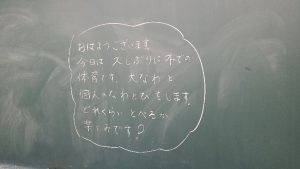 おはようございます。
今日は久しぶりに外での
体育です。大なわと
個人のなわとびをします。
どれくらいとべるか
楽しみです？